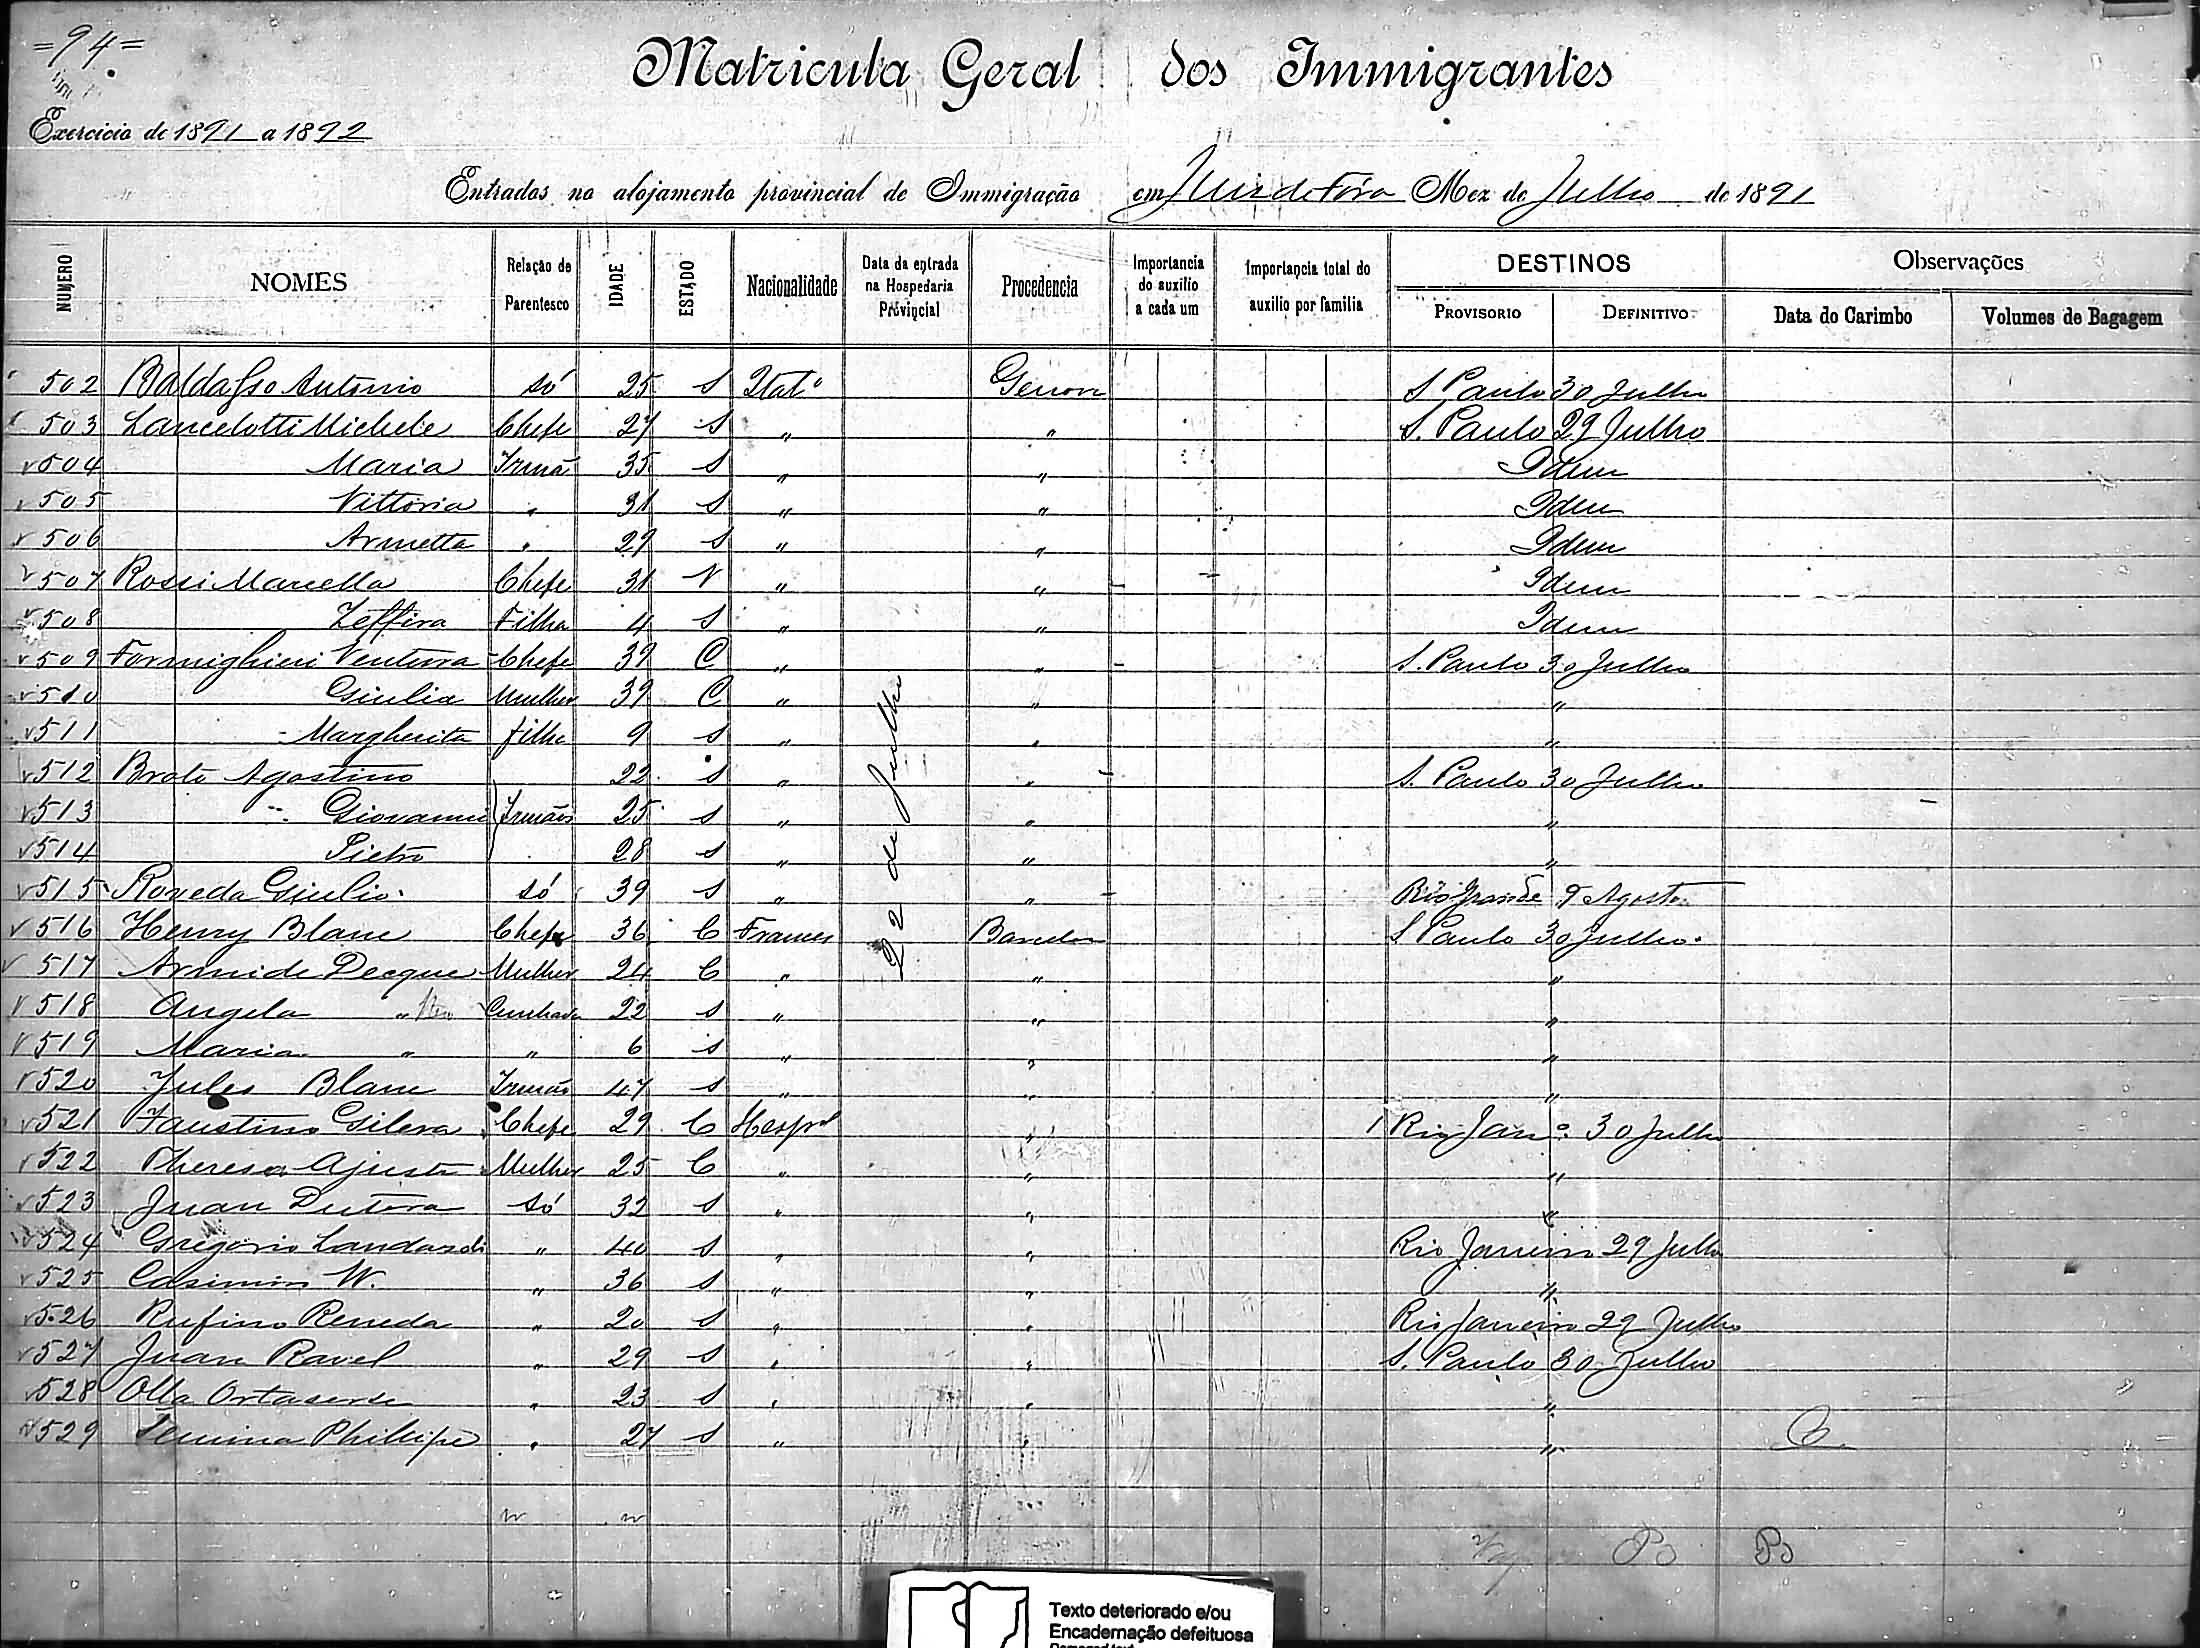 =94=
Matricula Geral dos Immigrantes
Exercicio de 1891 a 1892
Entrados no alojamento provincial de Immigração em Juiz de Fóra Mez de Julho de 1891
NUMERO NOMES Relação de Parentesco IDADE ESTADO Nacionalidade Data da entrada na Hospedaria Provincial Procedencia Importancia do auxilio a cada um Importancia total do auxilio por familia DESTINOS PROVISORIO DEFINITIVO Observações Data do Carimbo Volumes de Bagagem
22 de Julho
502 Antonio só 25 S Ital° Genova S Paulo 30 Julho
503 Lancelotti Michele Chefe 27 S " " S. Paulo 29 Julho
504 Maria Irmã 35 S " " Idem
505 Vittoria " 31 S " " Idem
506 Armetta " 29 S " " Idem
507 Rossi Marcella Chefe 31 V " " Idem
508 Zeffira Filha 4 S " " Idem
509 Formighieri Ventura Chefe 39 C " " S. Paulo 30 Julho
510 Giulia Mulher 39 C " " "
511 Margherita filha 9 S " " "
512 Broto Agostino 22 S " " S. Paulo 30 Julho
513 " Giovanni Irmãos 25 S " " "
514 Pietro 28 S " " "
515 Roveda Giulio só 39 S " " Rio Grande 9 Agosto
516 Henry Blanc Chefe 36 C Frances Barcelon S Paulo 30 Julho
517 Armide Decque Mulher 24 C " " "
518 Angela " Cunhada 22 S " " "
519 Maria " " 6 S " " "
520 Jules Blanc Irmão 47 S " "
521 Faustino Gilera Chefe 29 C Hespl " 1 Rio Jan°. 30 Julho
522 Theresa Mulher 25 C " " "
523 Juan Dutora só 32 S " " "
524 Gregorio " 40 S " " Rio Janeiro 29 Julho
525 Casimiro W. " 36 S " " "
526 Rufino Reneda " 20 S " " Rio Janeiro 29 Julho
527 Juan Ravel " 29 S " " S. Paulo 30 Julho
528 Olla " 23 S " " "
529 Phillipe " 27 S " " "
Texto deteriorado e/ou
Encadernação defeituosa